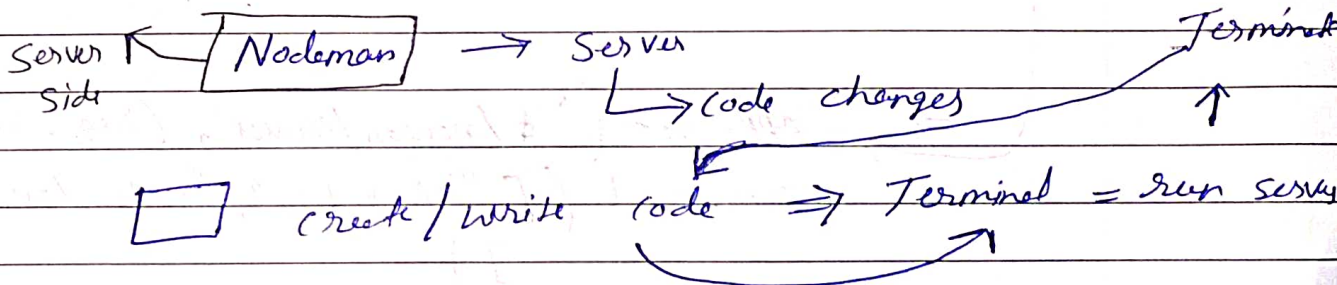 Server Side [Nodeman] → Server Terminal
↳ code changes ↑
create / write code ⇒ Terminal = run server